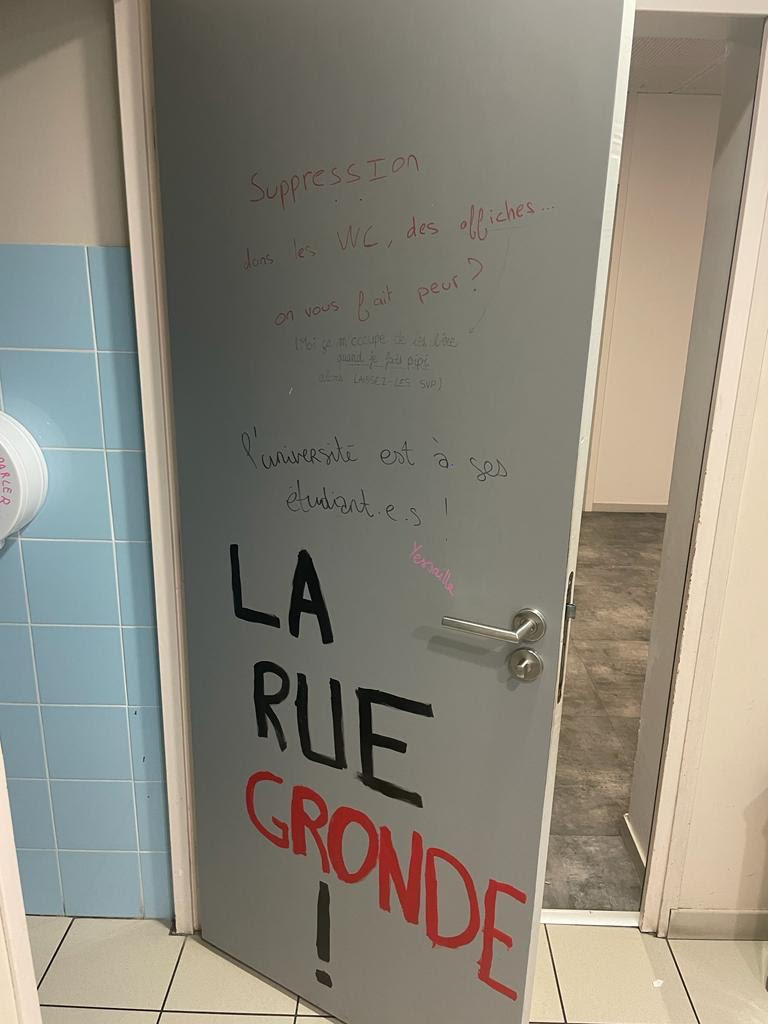 SuppressIon
dans les WC, des affiches...
on vous fait peur?
(Moi ça m'occupe de les lire
quand je fais pipi
alors LAISSEZ-LES SVP)
l'université est à ses
étudiant.e.s !
LA
RUE
GRONDE
!
PARLER